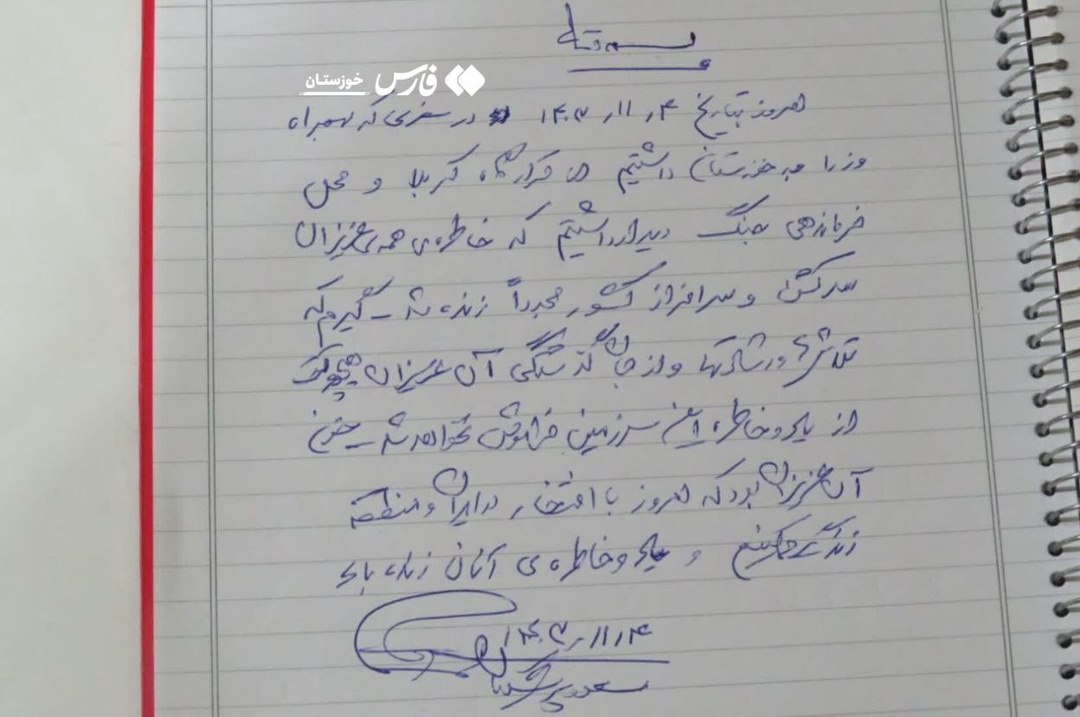 بسمه تعالی
فارس خوزستان
امروز بتاریخ ۱۴۰۳/۱۱/۴ در سفری که بهمراه
وزرا به خوزستان داشتیم از قرارگاه کربلا و محل
فرماندهی جنگ دیدار داشتیم که خاطره‌ی همه‌ی عزیزان
سرکش و سرافراز کشور مجدداً زنده شد
تلاش و رشادتها و از جان گذشتگی آن عزیزان هیچوقت
از یاد و خاطره این سرزمین فراموش نخواهد شد
آن عزیزان بود که امروز با افتخار در ایران و منطقه
زندگی میکنیم و یاد و خاطره‌ی آنان زنده باد
۱۴۰۳/۱۱/۴
مسعود پزشکیان